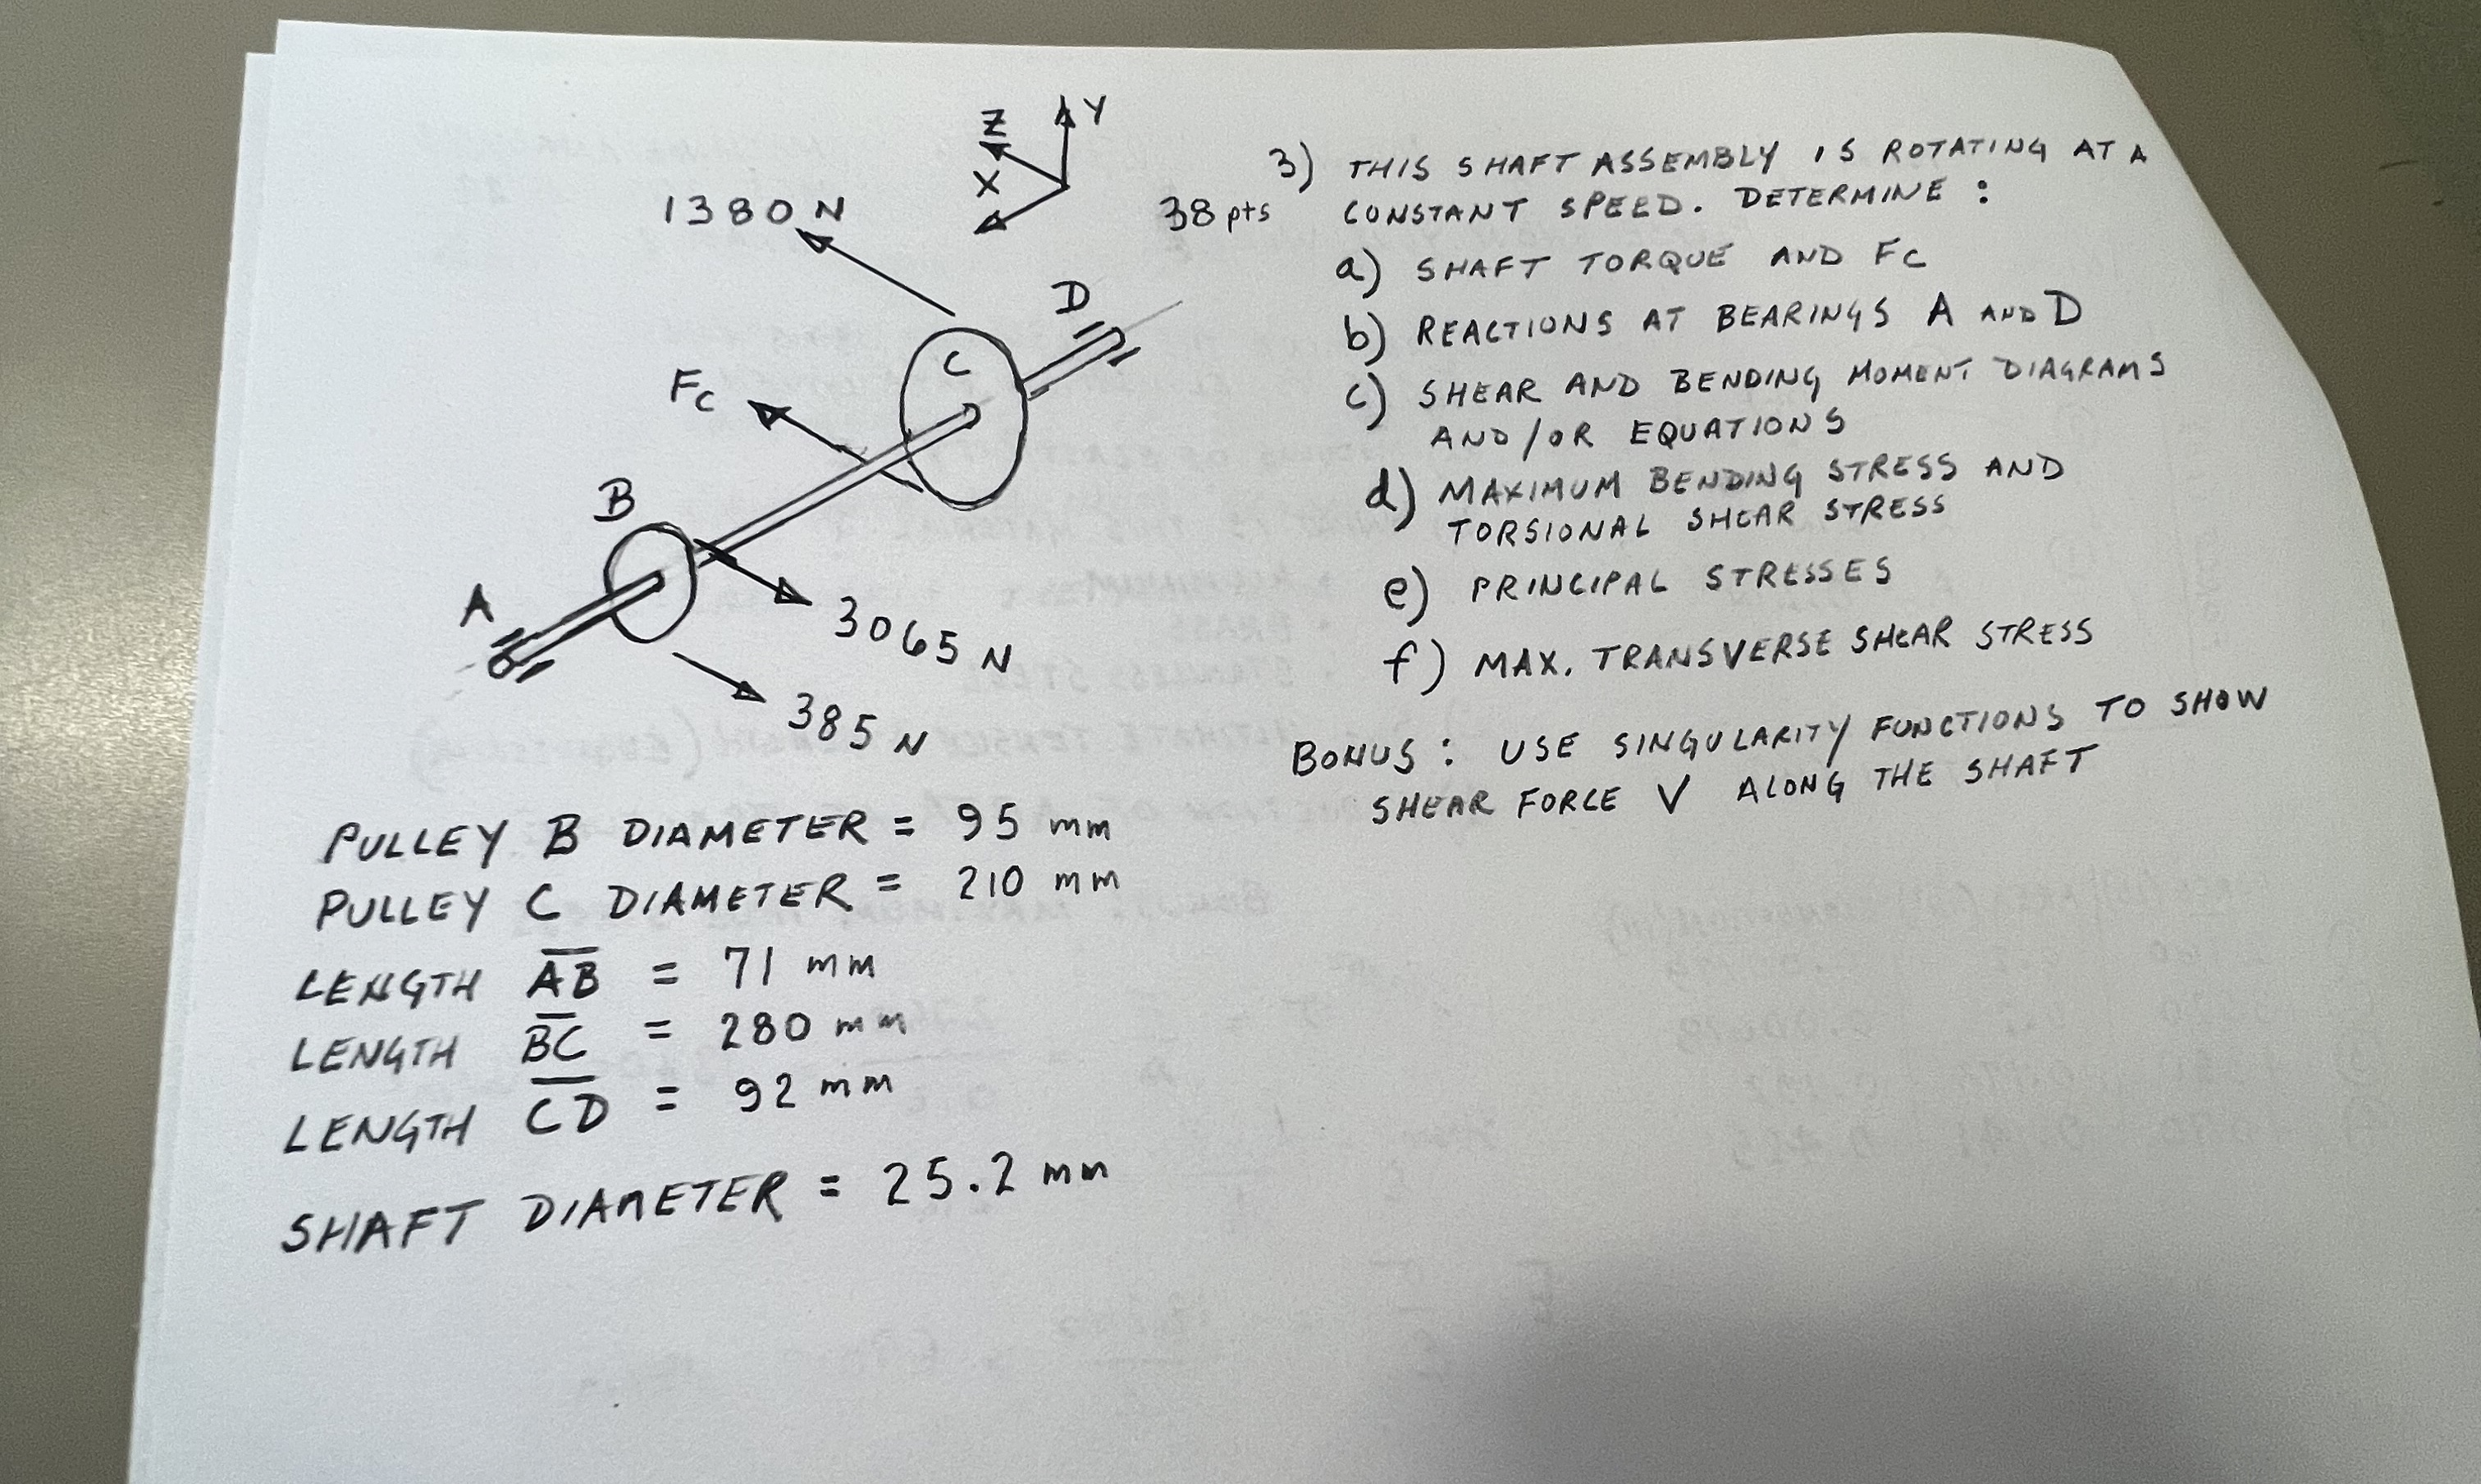 Z
Y
X
1380 N
D
C
Fc
B
A
3065 N
385 N
PULLEY B DIAMETER = 95 mm
PULLEY C DIAMETER = 210 mm
LENGTH AB = 71 mm
LENGTH BC = 280 mm
LENGTH CD = 92 mm
SHAFT DIAMETER = 25.2 mm
3) THIS SHAFT ASSEMBLY IS ROTATING AT A
38 pts CONSTANT SPEED. DETERMINE :
a) SHAFT TORQUE AND FC
b) REACTIONS AT BEARINGS A AND D
c) SHEAR AND BENDING MOMENT DIAGRAMS
AND/OR EQUATIONS
d) MAXIMUM BENDING STRESS AND
TORSIONAL SHEAR STRESS
e) PRINCIPAL STRESSES
f) MAX. TRANSVERSE SHEAR STRESS
BONUS : USE SINGULARITY FUNCTIONS TO SHOW
SHEAR FORCE V ALONG THE SHAFT